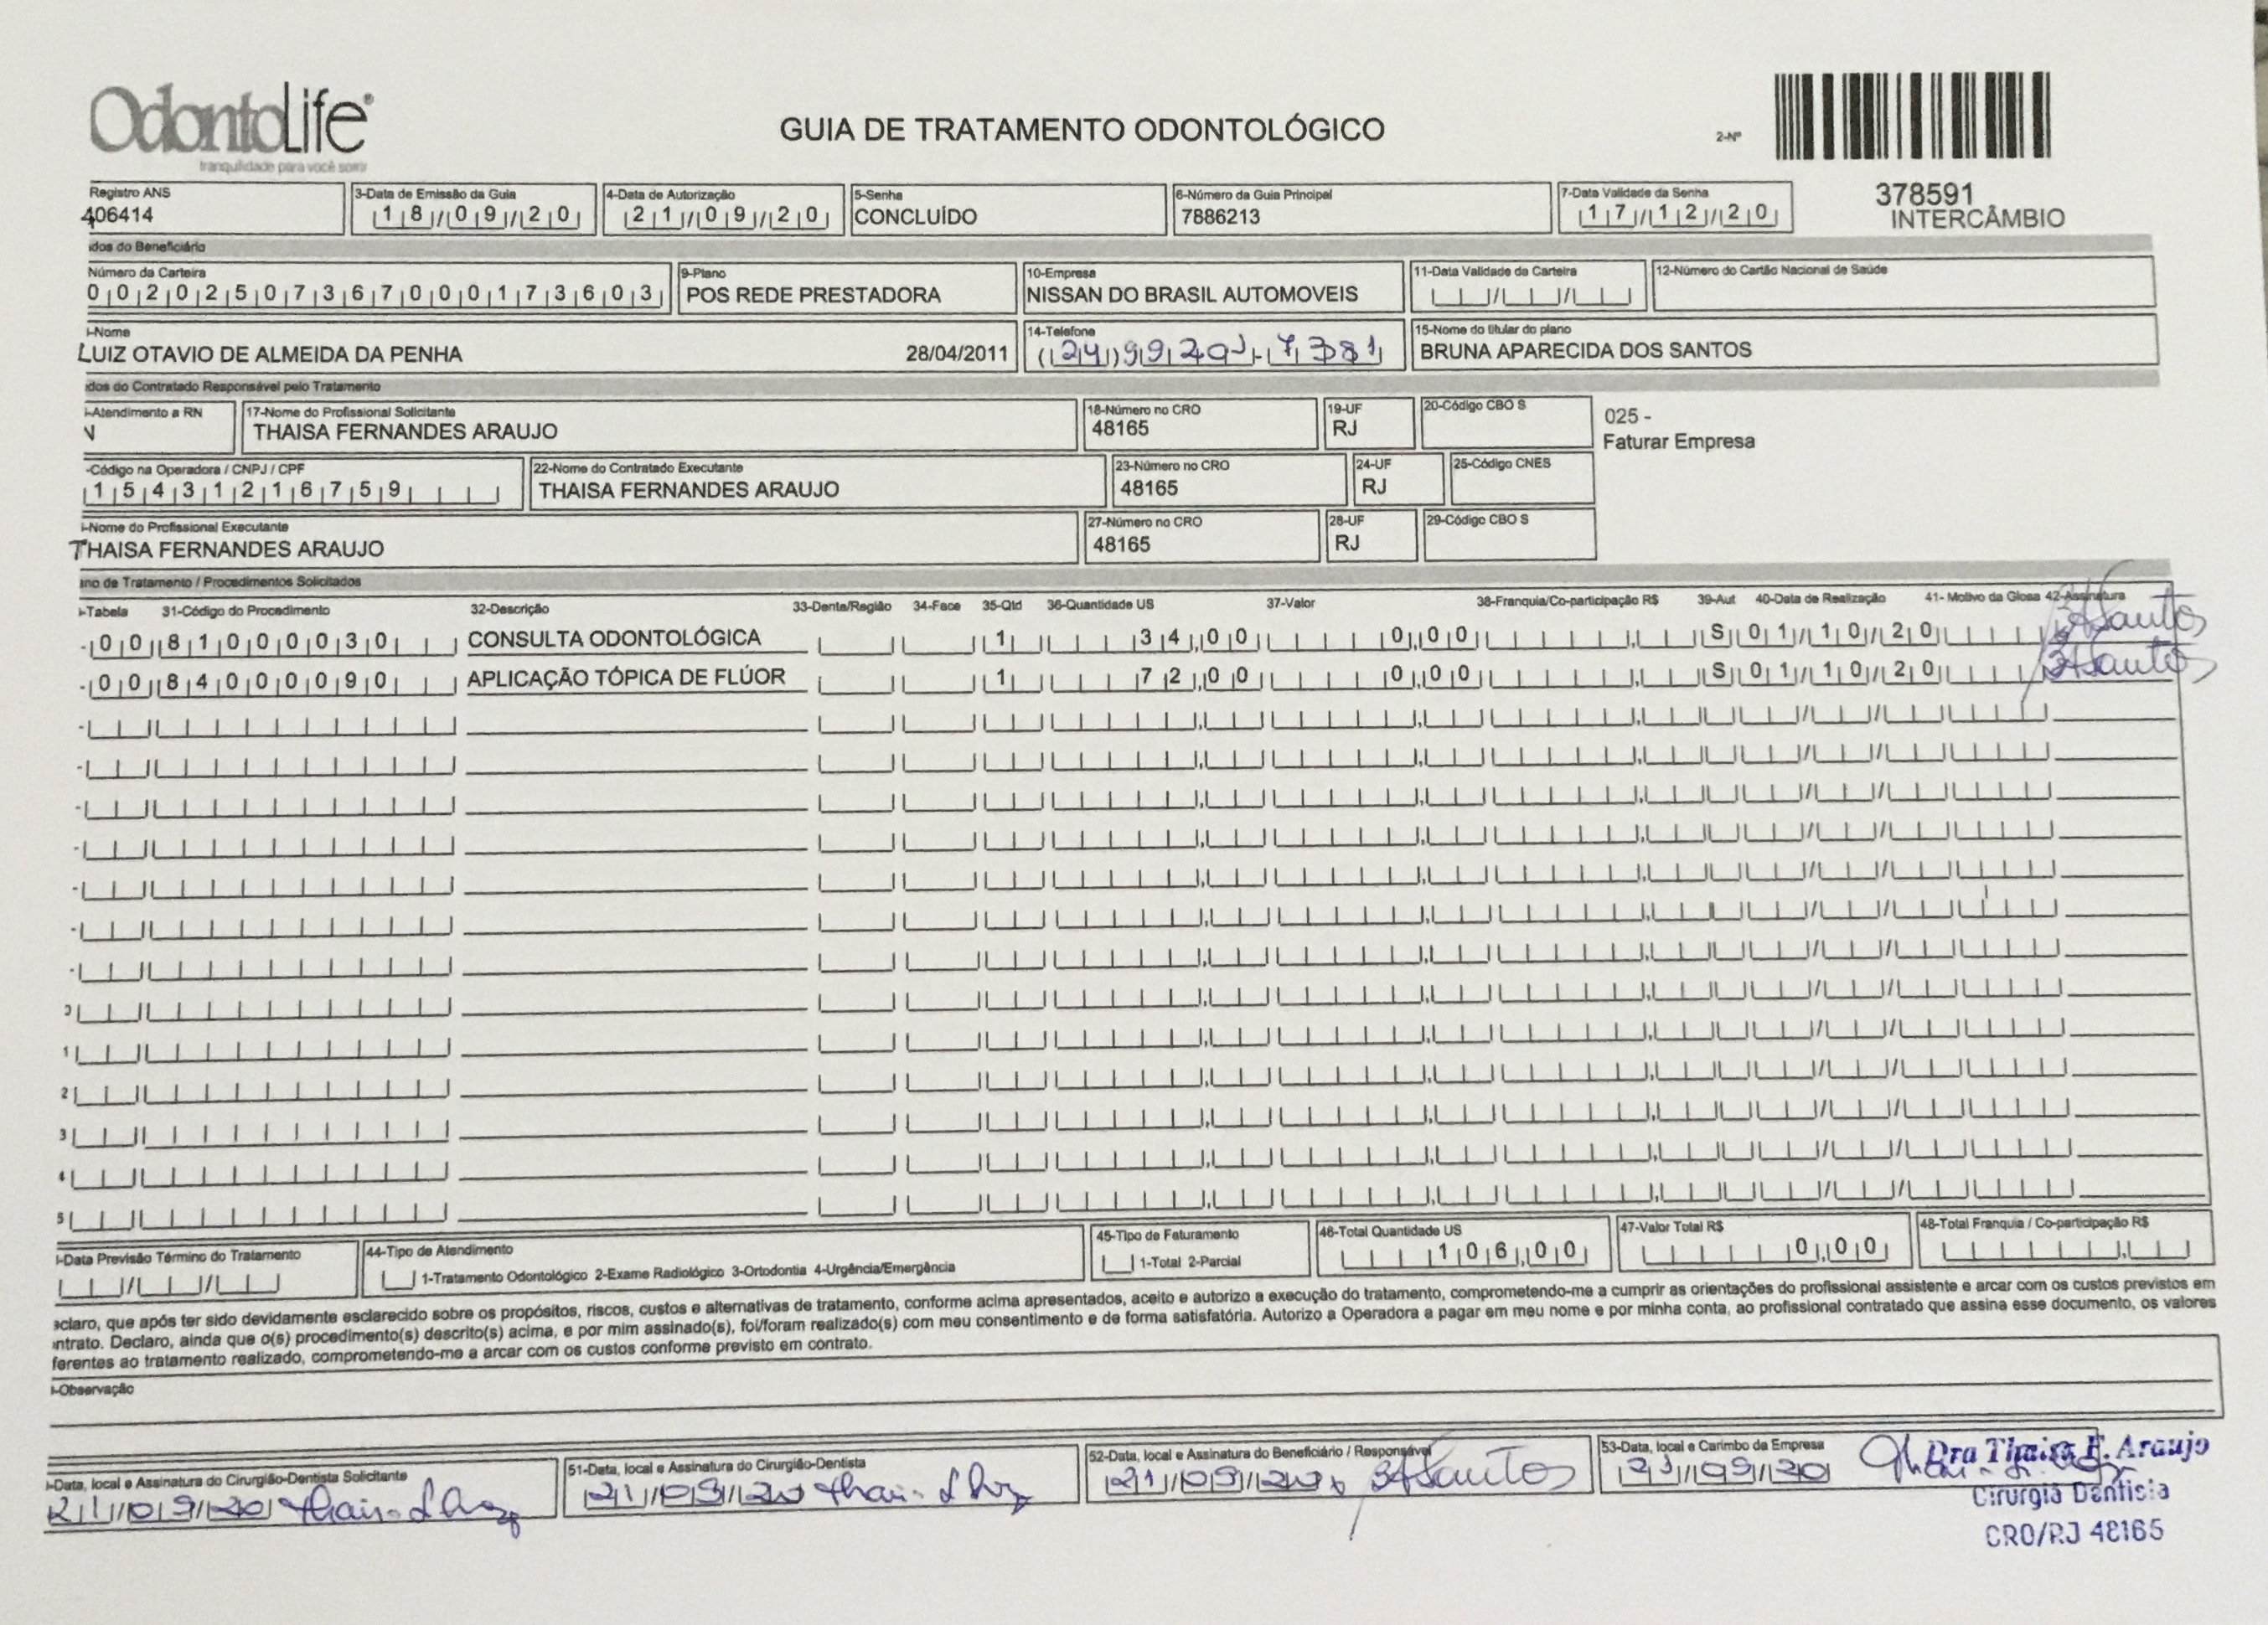 OdontoLife®
tranquilidade para você sorrir
GUIA DE TRATAMENTO ODONTOLÓGICO
2-Nº
378591
INTERCÂMBIO
Registro ANS
406414
3-Data de Emissão da Guia
18/09/20
4-Data de Autorização
21/09/20
5-Senha
CONCLUÍDO
6-Número da Guia Principal
7886213
7-Data Validade da Senha
17/12/20
dos do Beneficiário
Número da Carteira
00202507367000173603
9-Plano
POS REDE PRESTADORA
10-Empresa
NISSAN DO BRASIL AUTOMOVEIS
11-Data Validade da Carteira
12-Número do Cartão Nacional de Saúde
-Nome
LUIZ OTAVIO DE ALMEIDA DA PENHA 28/04/2011
14-Telefone
15-Nome do titular do plano
BRUNA APARECIDA DOS SANTOS
dos do Contratado Responsável pelo Tratamento
-Atendimento a RN
N
17-Nome do Profissional Solicitante
THAISA FERNANDES ARAUJO
18-Número no CRO
48165
19-UF
RJ
20-Código CBO S
025 -
Faturar Empresa
-Código na Operadora / CNPJ / CPF
15431216759
22-Nome do Contratado Executante
THAISA FERNANDES ARAUJO
23-Número no CRO
48165
24-UF
RJ
25-Código CNES
-Nome do Profissional Executante
THAISA FERNANDES ARAUJO
27-Número no CRO
48165
28-UF
RJ
29-Código CBO S
ano de Tratamento / Procedimentos Solicitados
-Tabela 31-Código do Procedimento 32-Descrição 33-Dente/Região 34-Face 35-Qtd 36-Quantidade US 37-Valor 38-Franquia/Co-participação R$ 39-Aut 40-Data de Realização 41- Motivo da Glosa 42-Assinatura
-00 81000030 CONSULTA ODONTOLÓGICA 1 34,00 0,00 S 01/10/20 Santos
-00 84000090 APLICAÇÃO TÓPICA DE FLÚOR 1 72,00 0,00 S 01/10/20 Santos
1
2
3
4
5
-Data Previsão Término do Tratamento
44-Tipo de Atendimento
1-Tratamento Odontológico 2-Exame Radiológico 3-Ortodontia 4-Urgência/Emergência
45-Tipo de Faturamento
1-Total 2-Parcial
46-Total Quantidade US
106,00
47-Valor Total R$
0,00
48-Total Franquia / Co-participação R$
eclaro, que após ter sido devidamente esclarecido sobre os propósitos, riscos, custos e alternativas de tratamento, conforme acima apresentados, aceito e autorizo a execução do tratamento, comprometendo-me a cumprir as orientações do profissional assistente e arcar com os custos previstos em
ntrato. Declaro, ainda que o(s) procedimento(s) descrito(s) acima, e por mim assinado(s), foi/foram realizado(s) com meu consentimento e de forma satisfatória. Autorizo a Operadora a pagar em meu nome e por minha conta, ao profissional contratado que assina esse documento, os valores
ferentes ao tratamento realizado, comprometendo-me a arcar com os custos conforme previsto em contrato.
-Observação
-Data, local e Assinatura do Cirurgião-Dentista Solicitante
21/09/20
51-Data, local e Assinatura do Cirurgião-Dentista
21/09/20
52-Data, local e Assinatura do Beneficiário / Responsável
21/09/20 Santos
53-Data, local e Carimbo da Empresa
21/09/20
Dra Thaisa F. Araujo
Cirurgiã Dentista
CRO/RJ 48165